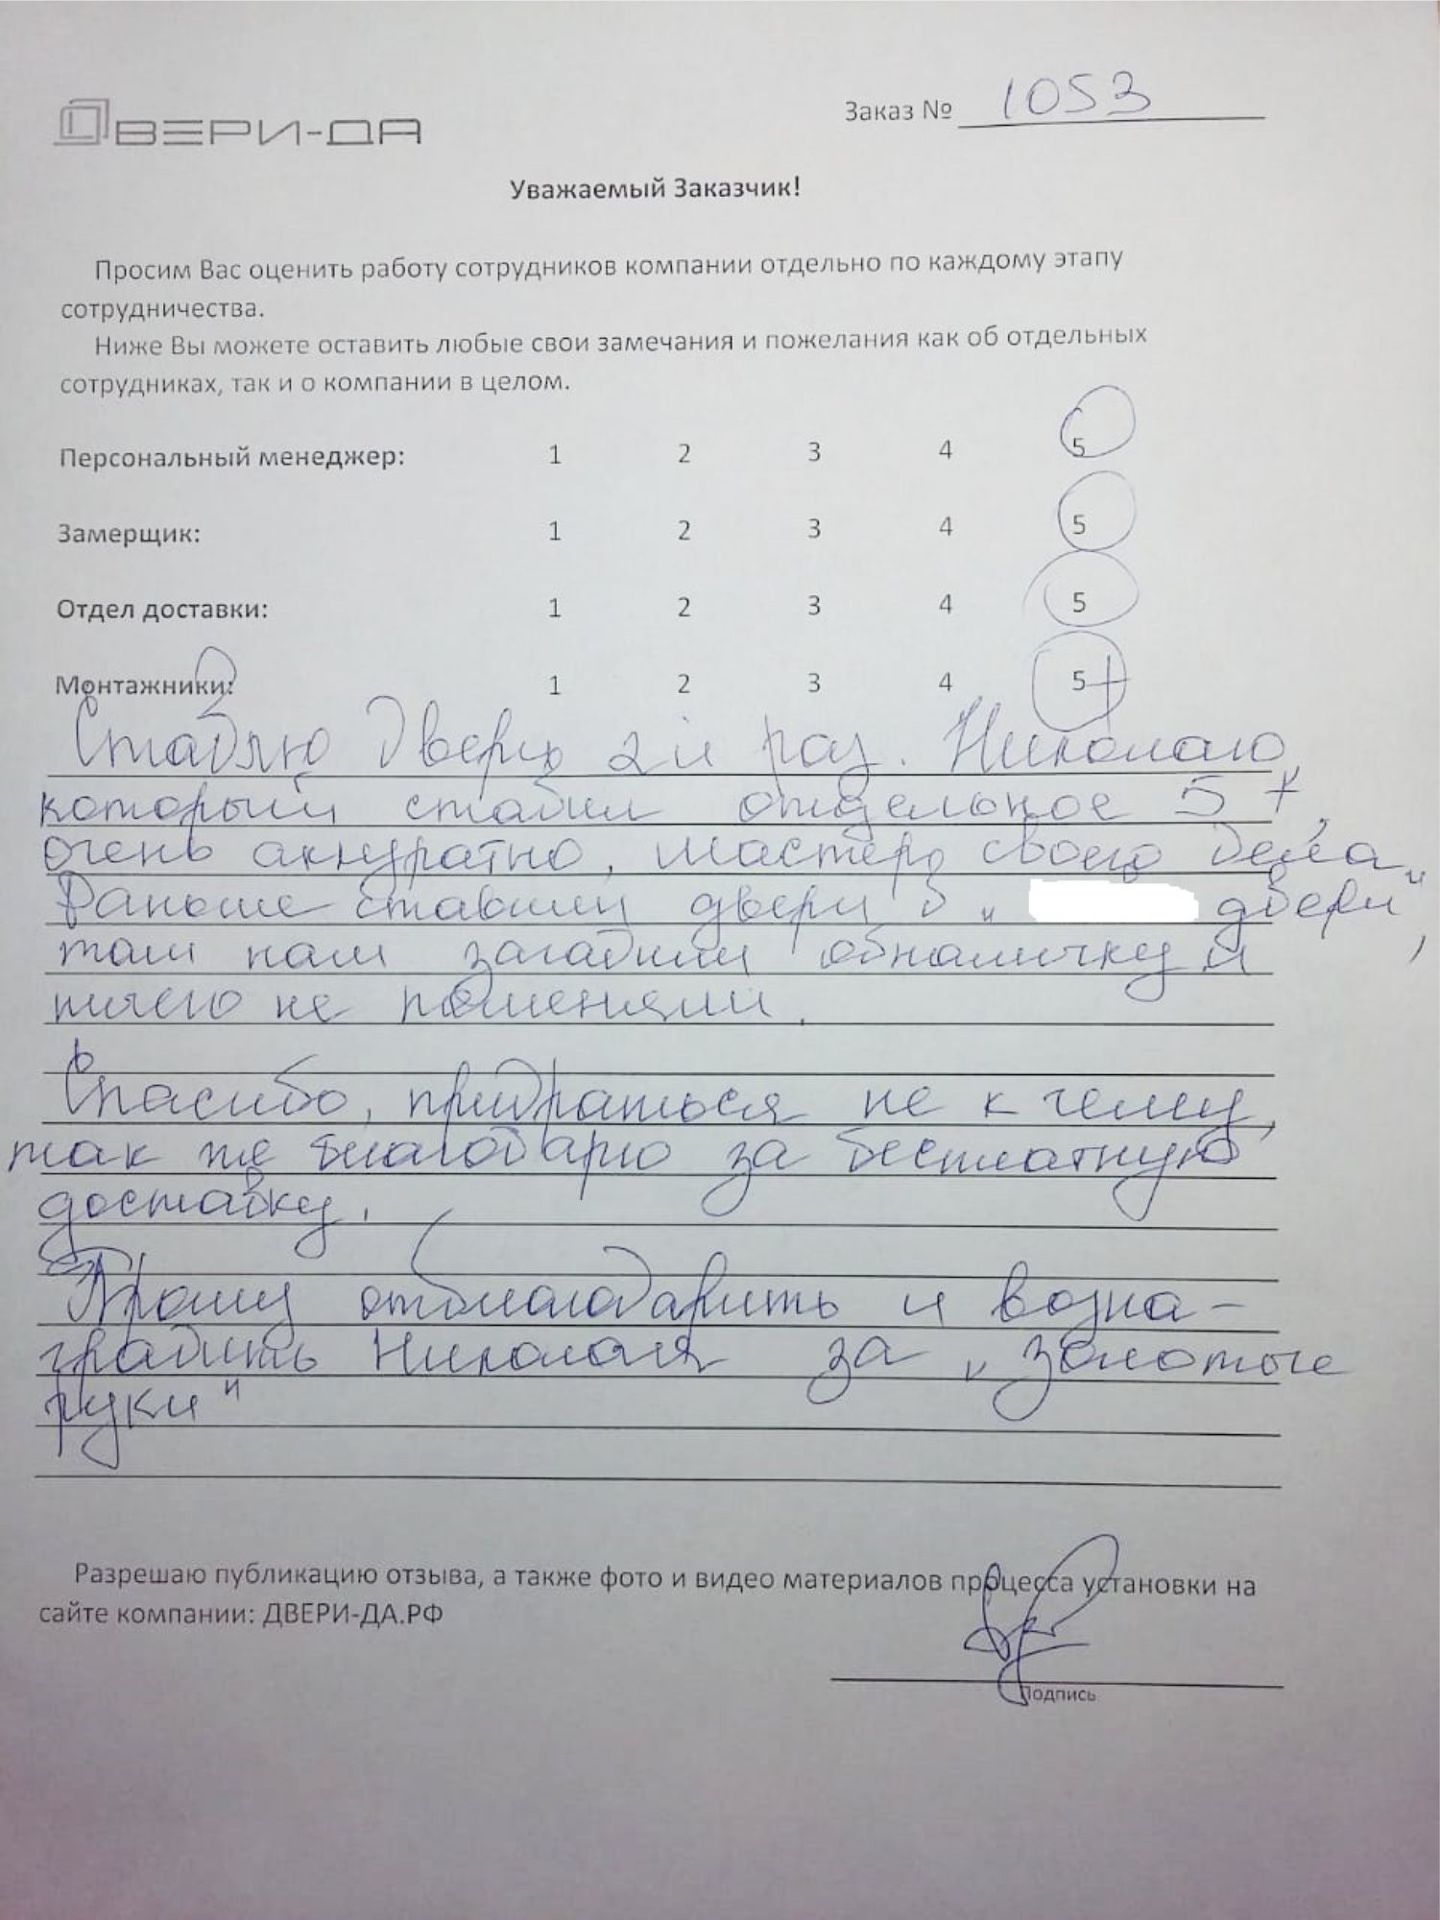 ДВЕРИ-ДА
Заказ № 1053
Уважаемый Заказчик!
Просим Вас оценить работу сотрудников компании отдельно по каждому этапу
сотрудничества.
Ниже Вы можете оставить любые свои замечания и пожелания как об отдельных
сотрудниках, так и о компании в целом.
Персональный менеджер: 1 2 3 4 5
Замерщик: 1 2 3 4 5
Отдел доставки: 1 2 3 4 5
Монтажники: 1 2 3 4 5+
Ставлю дверь 2й раз. Николаю,
который ставил отдельное 5+,
очень аккуратно, мастер своего дела.
Раньше ставили двери в " двери",
там нам загадили обналичку и
ничего не поменяли.
Спасибо, придраться не к чему,
так же благодарю за бесплатную
доставку.
Прошу отблагодарить и возна-
градить Николая за "золотые
руки"
Разрешаю публикацию отзыва, а также фото и видео материалов процесса установки на
сайте компании: ДВЕРИ-ДА.РФ
Подпись